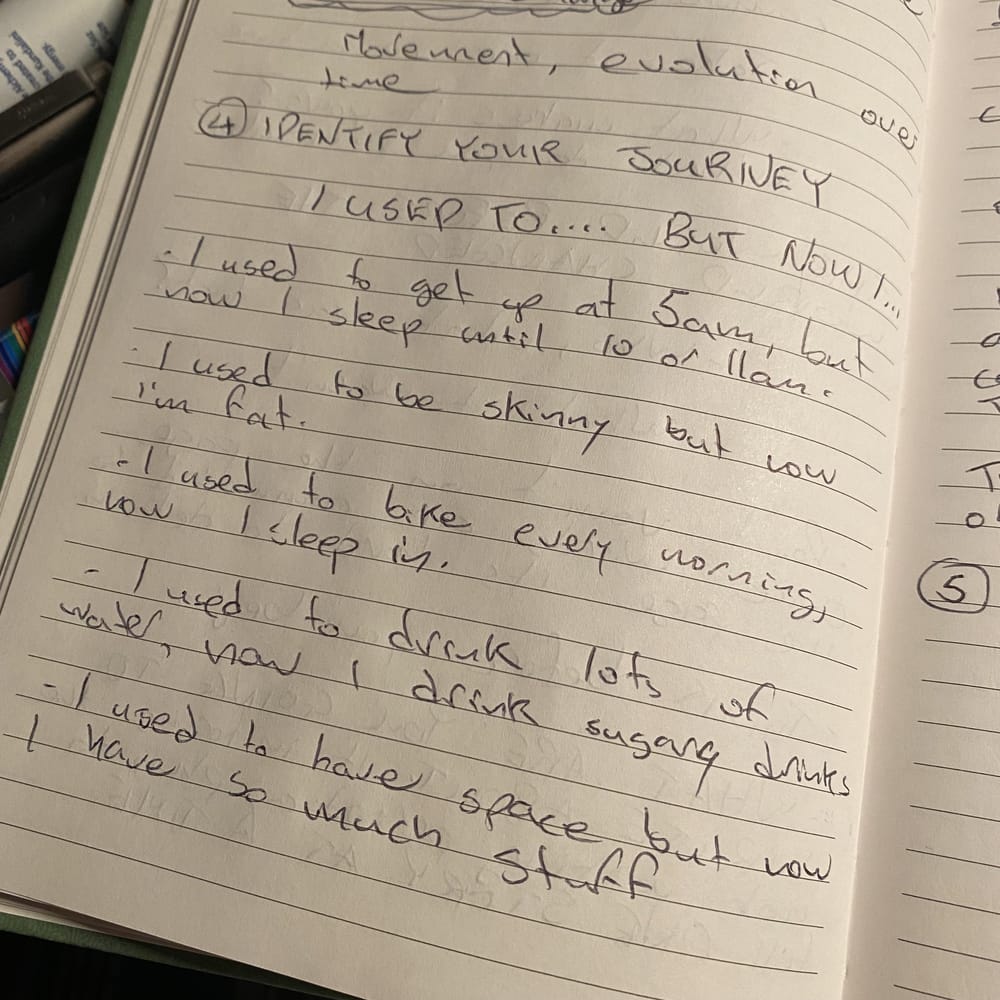 Movement, evolution over
time
④ IDENTIFY YOUR JOURNEY
I USED TO.... BUT NOW I...
- I used to get up at 5am, but
now I sleep until 10 or 11am.
- I used to be skinny but now
i'm fat.
- I used to bike every morning,
now I sleep in.
- I used to drink lots of
water, now I drink sugary drinks
- I used to have space but now
I have so much stuff
⑤